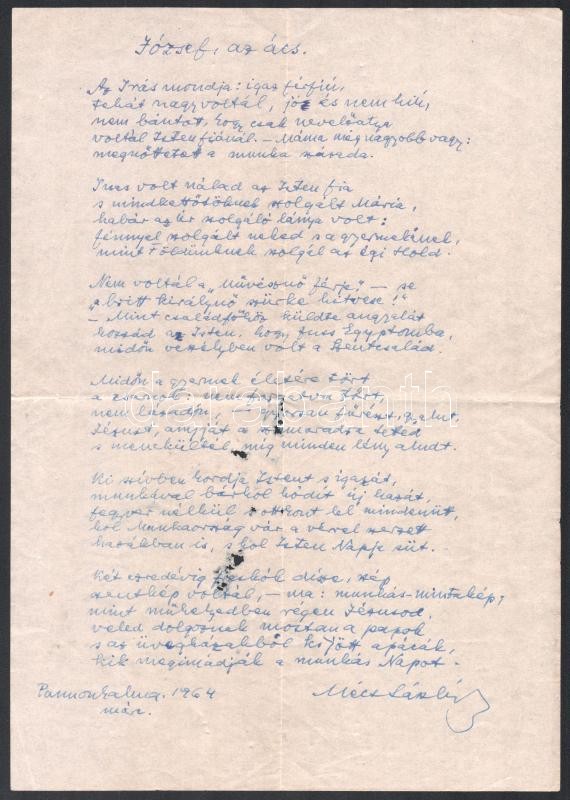 József, az ács.
Az Írás mondja: igaz férfiú,
tehát nagy voltál, jó és nem hiú,
nem bántott, hogy csak nevelőatya
voltál Isten fiánál. – Máma még nagyobb vagy:
megnöttetett a munka százada.
Inas volt nálad az Isten fia
s mindkettőtöknek szolgált Mária,
habár az Úr szolgáló lánya volt:
fénnyel szolgált neked s a gyermekének,
mint Földünknek szolgál az égi Hold.
Nem voltál a „művésznő férje” – se
„a britt királynő szürke hitvese!”
– Mint családfőhöz küldte angyalát
hozzád az Isten, hogy fuss Egyptomba,
midőn veszélyben volt a Szentcsalád.
Midőn a gyermek életére tört
a zsarnok: nem ragadva tőrt,
nem lázadón, – gyorsan fűrészt, gyalut,
Jézust, anyját a szamaradra tetted
s menekültél, míg minden lény aludt.
Ki szívben hordja Istent s igazát,
munkával bárhol hódít új hazát,
fegyver nélkül otthont lel mindenütt,
hol Munkaország vár a vérrel szerzett
hazákban is, hol Isten Napja süt. –
Két ezredévig dísze, szép
szentkép voltál, – ma: munkás-mintakép;
mint műhelyedben régen Jézusod,
veled dolgoznak mostan a papok
s az üvegházakból kijött apácák,
kik megimádják a munkás Napot. –
Pannonhalma. 1964
márc.
Mécs László